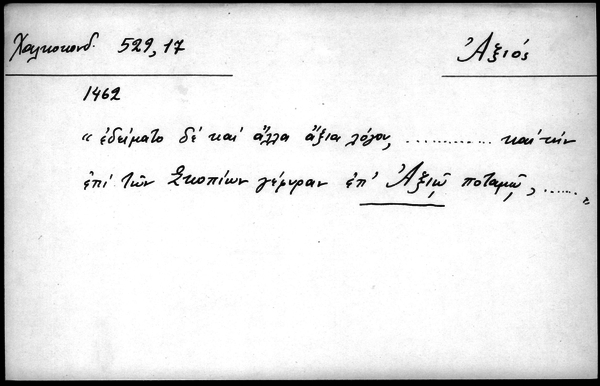 Χαλκοκονδ. 529,17 Ἀξιός
1462
« ἐδείματο δέ καί ἄλλα ἄξια λόγου, ............. καί τήν
ἐπί τῶν Σκοπίων γέφυραν ἐπ' Ἀξιῷ ποταμῷ, ....... »